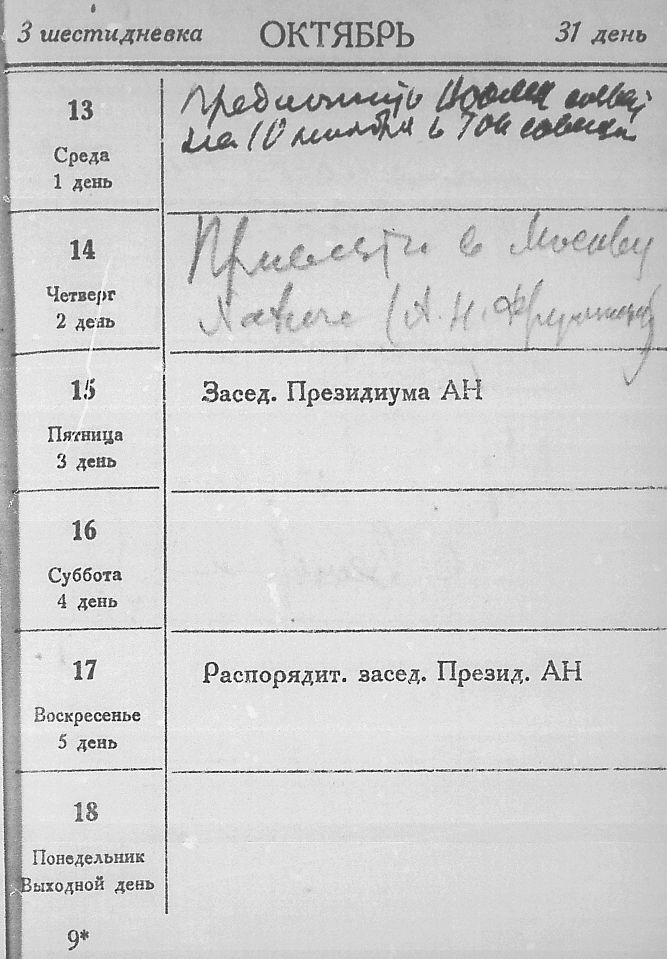 3 шестидневка ОКТЯБРЬ 31 день
13
Среда
1 день
на 10
14
Четверг
2 день
Привезти в Москву
(А. Н. Фрумкин)
15
Пятница
3 день
Засед. Президиума АН
16
Суббота
4 день
17
Воскресенье
5 день
Распорядит. засед. Презид. АН
18
Понедельник
Выходной день
9*